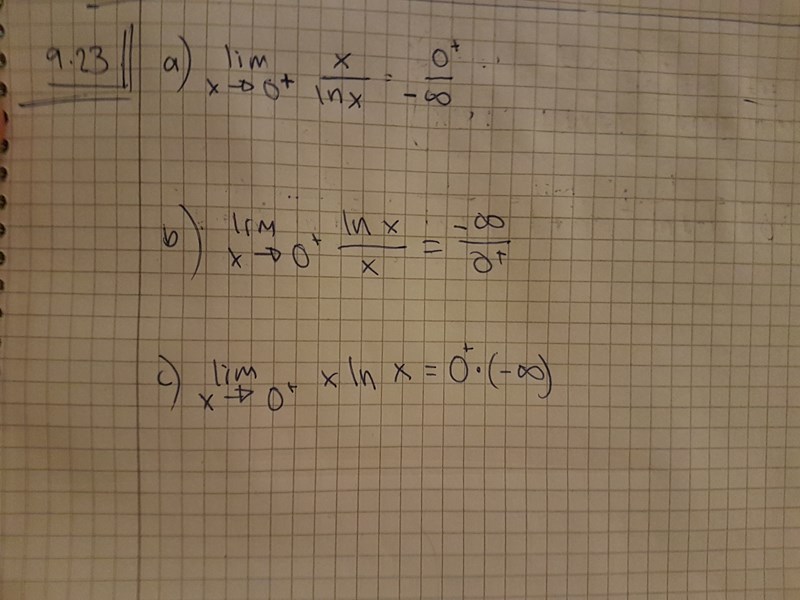 9.23 a) lim x→0⁺ x/ln x = 0⁺/-∞
b) lim x→0⁺ ln x/x = -∞/0⁺
c) lim x→0⁺ x ln x = 0⁺·(-∞)